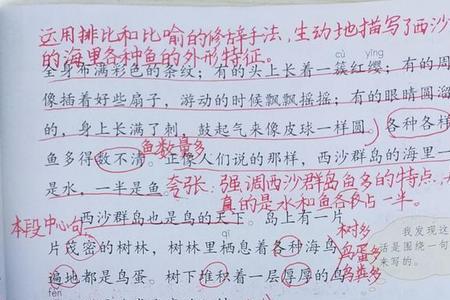 运用排比和比喻的修辞手法,生动地描写了西沙
的海里各种鱼的外形特征。
cù yīng
全身布满彩色的条纹;有的头上长着一簇红缨;有的周
像插着好些扇子,游动的时候飘飘摇摇;有的眼睛圆溜
的,身上长满了刺,鼓起气来像皮球一样圆。各种各样
鱼数量多
鱼多得数不清。正像人们说的那样,西沙群岛的海里一
是水,一半是鱼。
夸张:强调西沙群岛鱼多的特点,
真的是水和鱼各占一半。
本段中心句
西沙群岛也是鸟的天下。岛上有一片
树多
我发现这
qī
片茂密的树林,树林里栖息着各种海鸟
鸟蛋多
话是围绕一句
来写的。
遍地都是鸟蛋。树下堆积着一层厚厚的鸟
鸟粪多
fèn